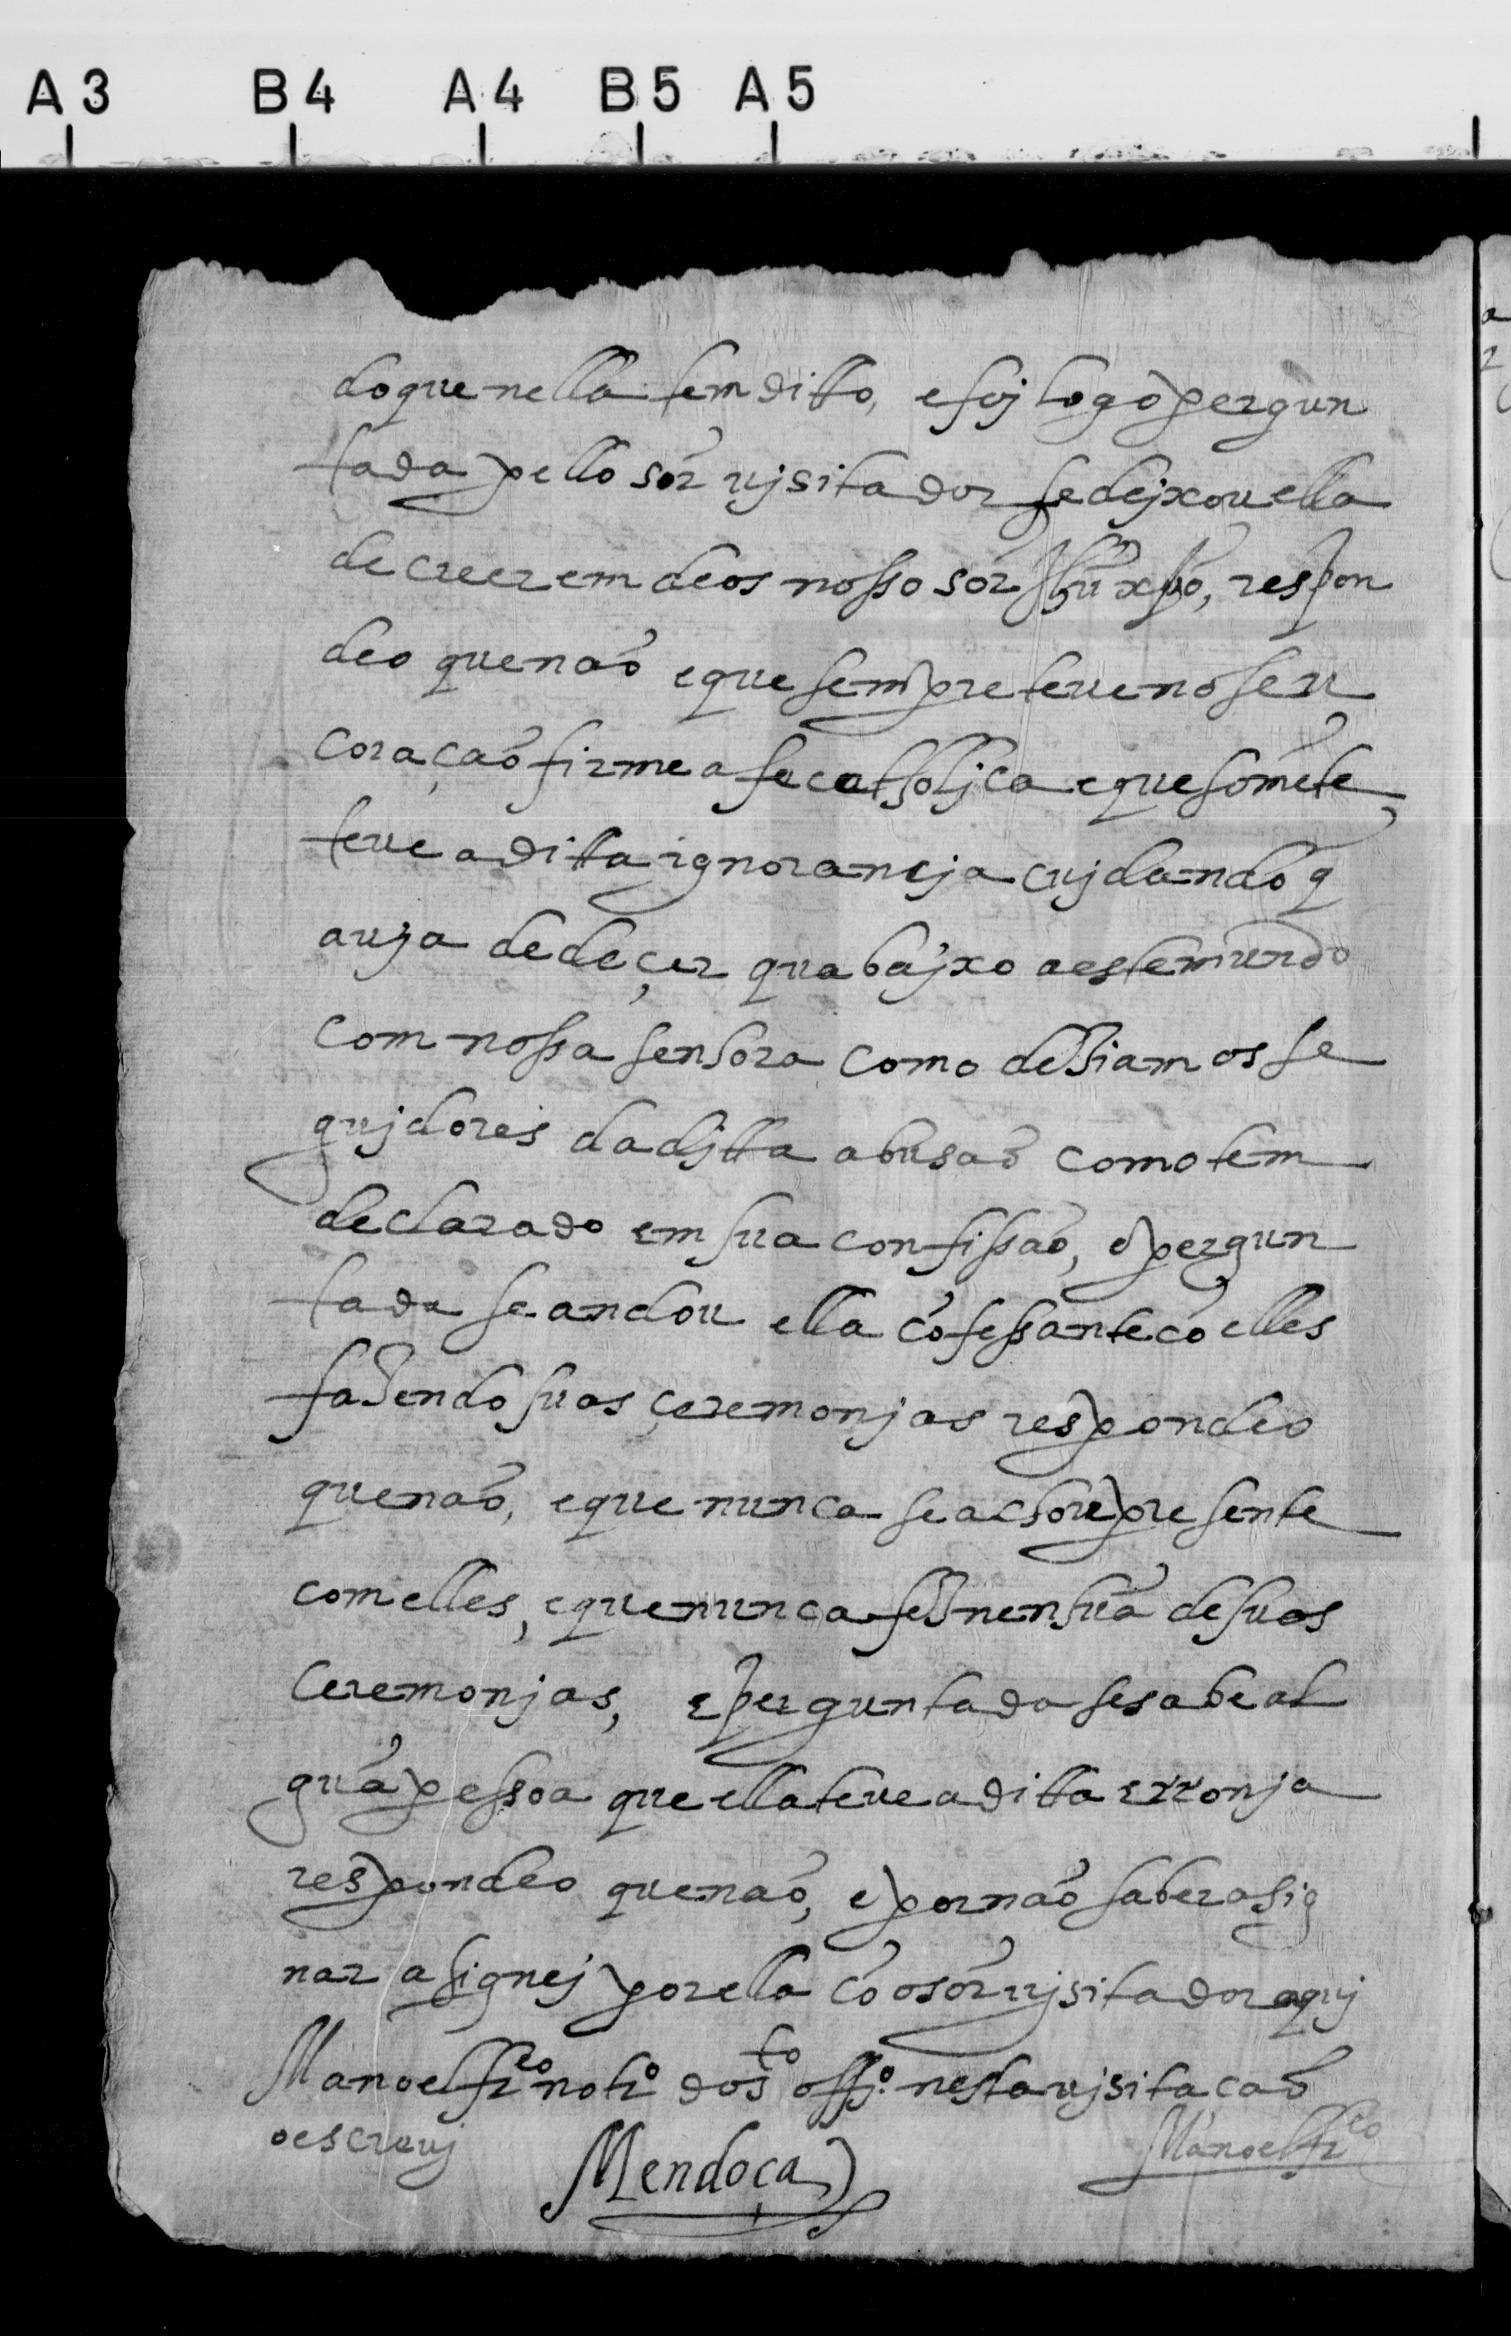 A3 B4 A4 B5 A5
do que nella tem ditto, e foj logo pergun
tada pello sõr vjsitador se dejxou ella
de creer em deos nosso sõr Jhũ xpõ, respon
deo que naõ e que sempre teue no seu
coraçaõ firme a fe catholjca e que somẽte
teue a ditta ignorancja cujdando q̃
auja de deçer qua bajxo a este mundo
com nossa senhora como deziam os se
gujdores da djtta abusaõ como tem
declarado em sua confissaõ, e pergun
tada se andou ella cõfessante cõ elles
fazendo suas çeremonjas respondeo
que naõ, e que nunca se achou presente
com elles, e que nunca fez nenhũa de suas
ceremonjas, e perguntada se sabe al
guã pessoa que ella teue a ditta erronja
respondeo que naõ, e por naõ saber asig
nar asignej por ella cõ o sõr vjsitador aquj
Manoel frco notro do sto offjo nesta vjsitacaõ
o escreuj
Mendoça
Manoel frco